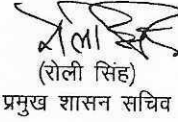 (रोली सिंह)
प्रमुख शासन सचिव